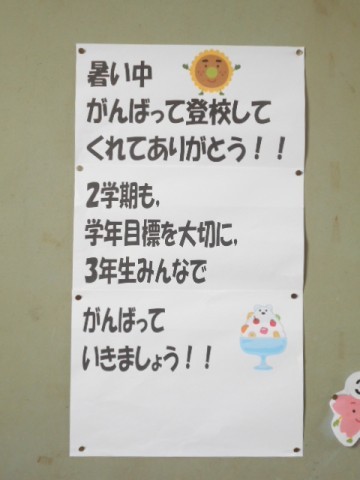 暑い中
がんばって登校して
くれてありがとう！！
2学期も，
学年目標を大切に，
3年生みんなで
がんばって
いきましょう！！